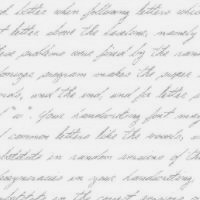 d letter when following letters which
t letter above the baseline, namely
these problems were fixed by the
program makes the super
and the end, and for letter
"w". Your handwriting font may
d common letters like the vowels,
substitute in random versions of th
idiosyncrasies in your handwriting.
substitute in the correct versions